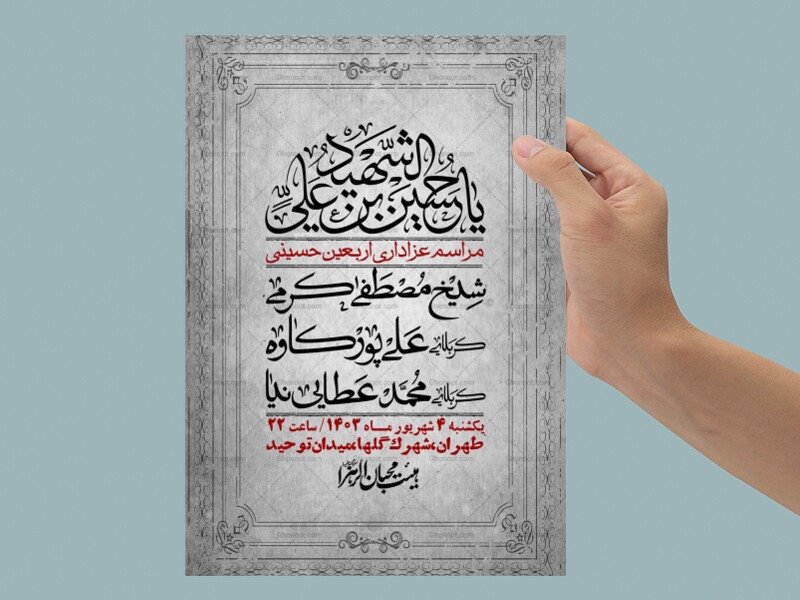 یا حسین بن علیّ الشّهید
مراسم عزاداری اربعین حسینی
شیخ مُصطَفیٰ کرمے
کربلایے عَلے پورکاوه
کربلایے محُمَّد عَطایی نیا
یکشنبه ۴ شهریور ماه ۱۴۰۳/ ساعت ۲۲
طهران،شهرك گلها،میدان توحید
هیئت محبان الزهرا